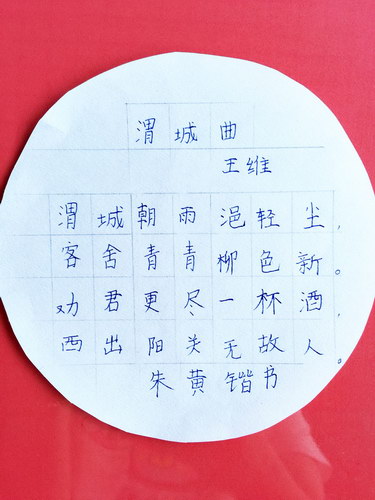 渭城曲
王维
渭城朝雨浥轻尘，
客舍青青柳色新。
劝君更尽一杯酒，
西出阳关无故人。
朱黄锴书